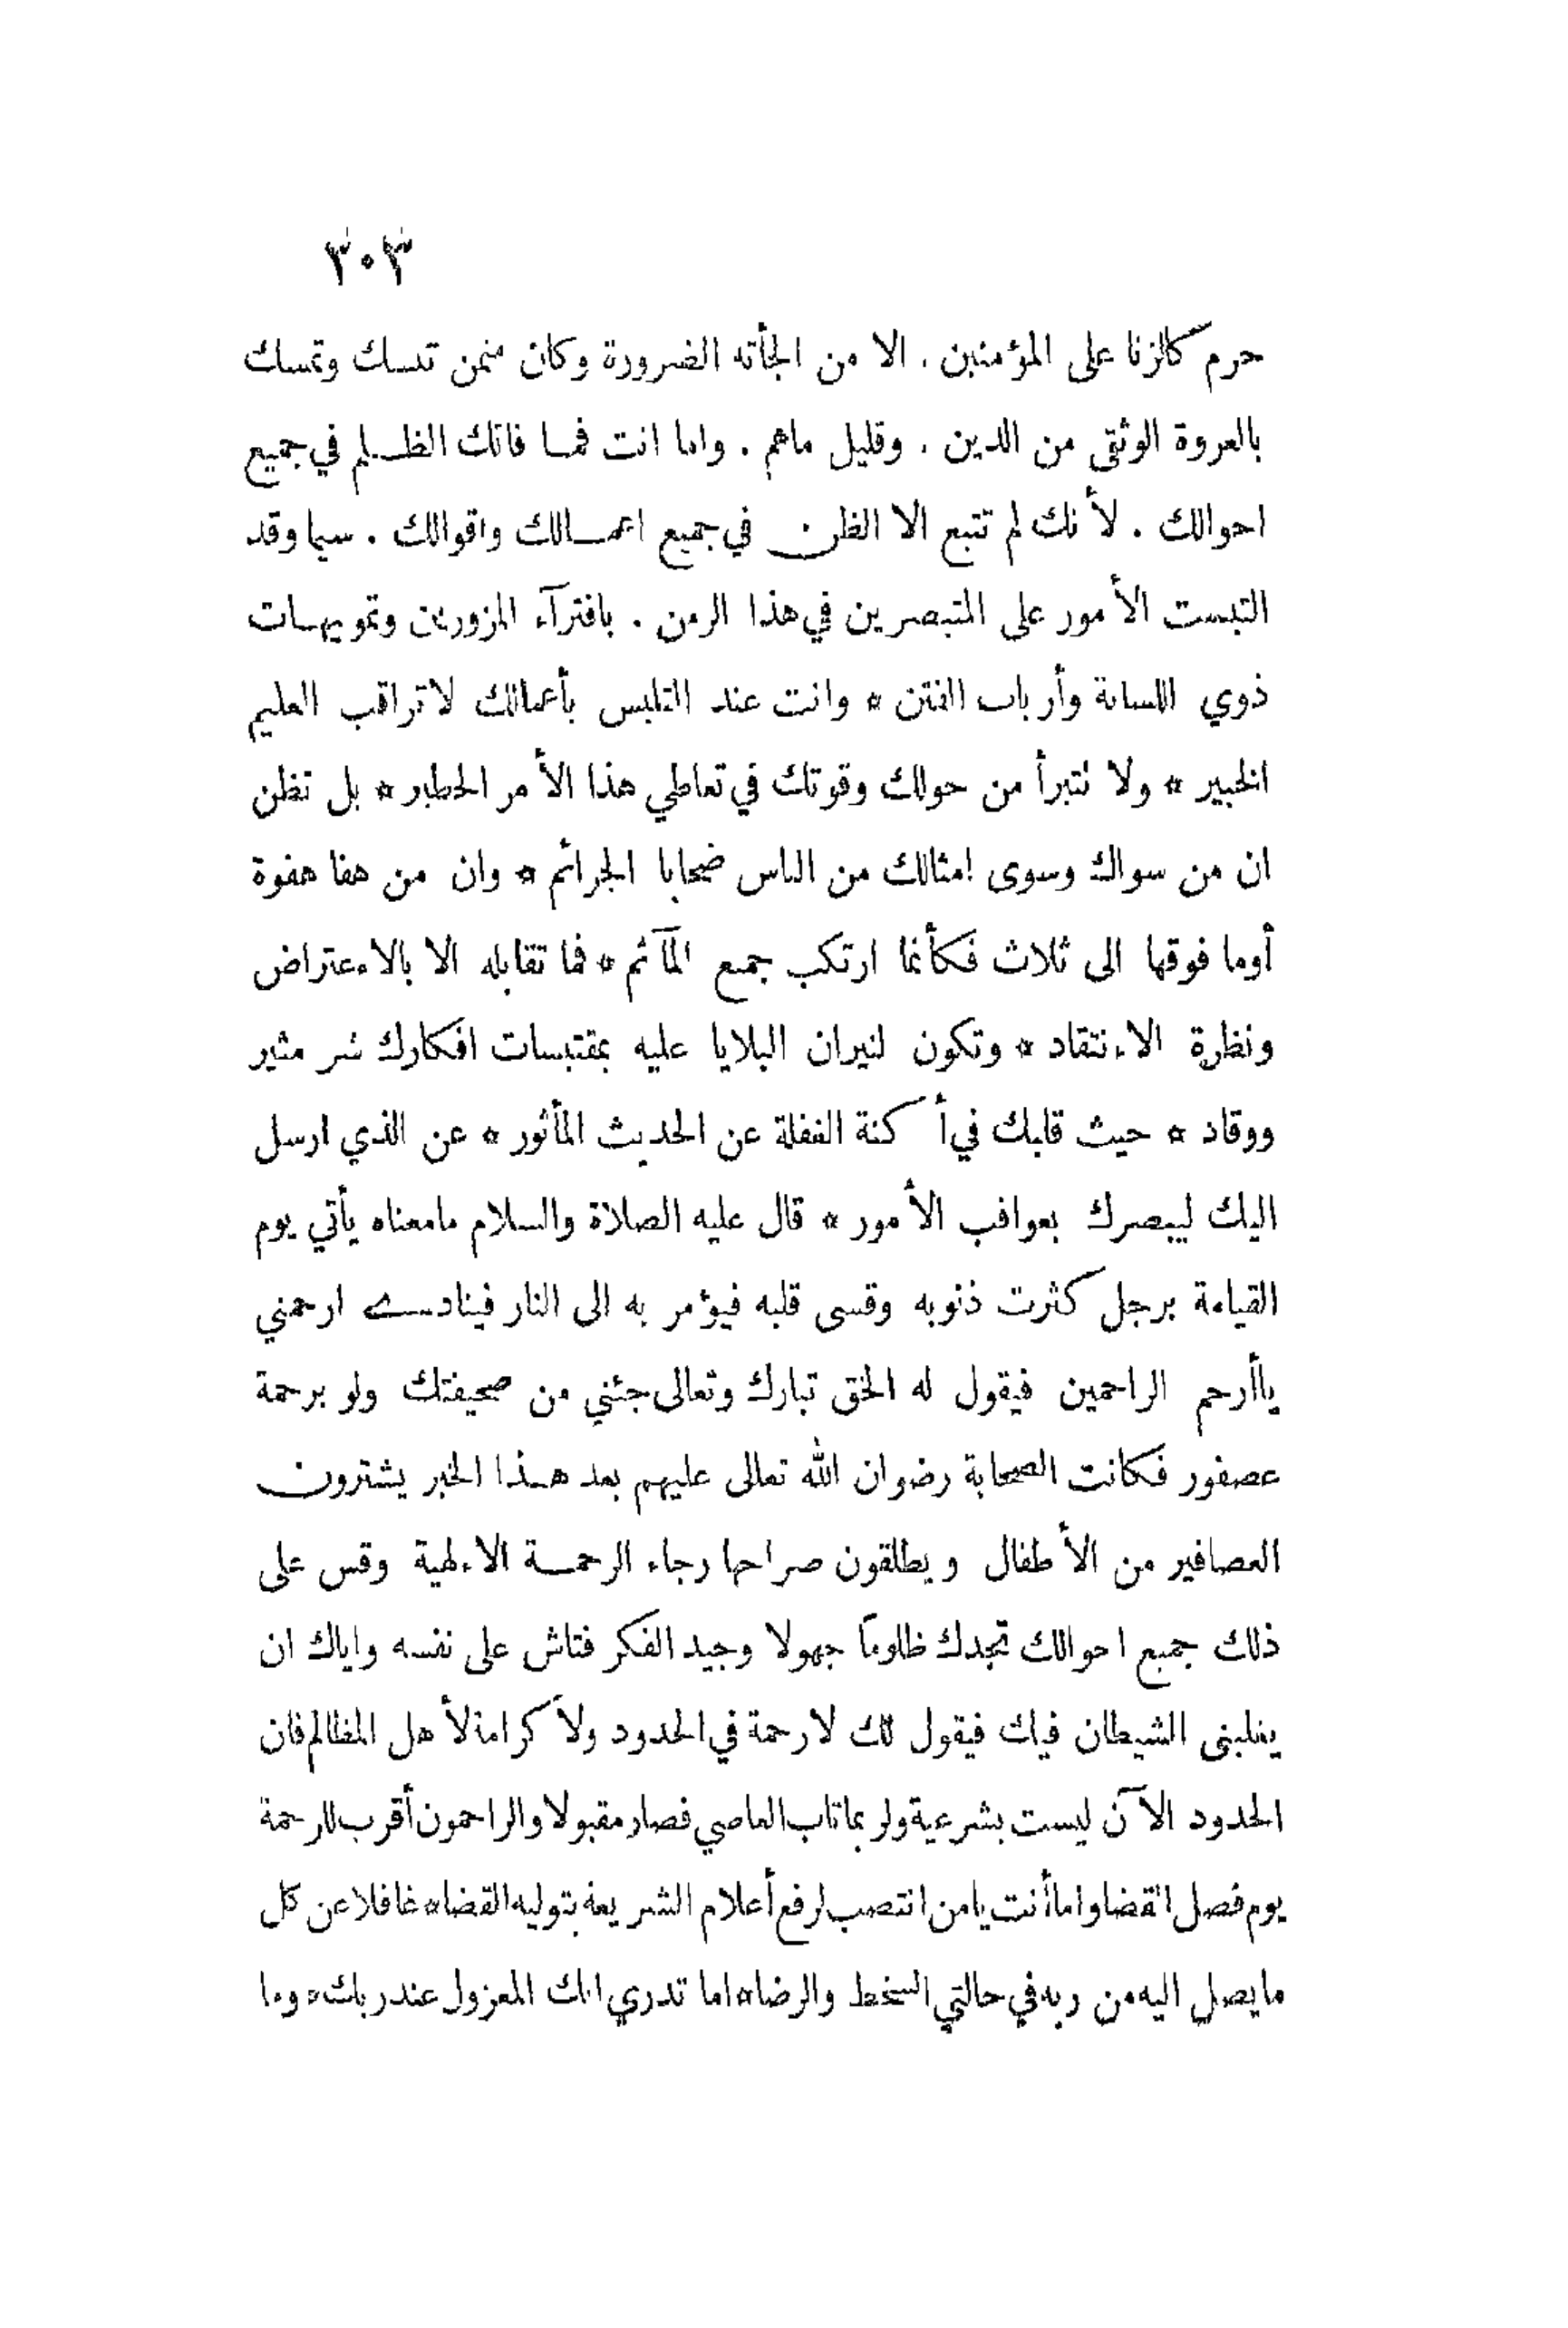 ٣٠٣
حرم كالزنا على المؤمنين . الا من الجأته الضرورة وكان ممن تنسك وتمسك
بالعروة الوثقى من الدين . وقليل ماهم . واما انت فما فاتك الظلم في جميع
احوالك . لأنك لم تتبع الا الظن في جميع اعمالك واقوالك . سيما وقد
التبست الأمور على المتبصرين في هذا الزمن . بافترآء المزورين وتمويهات
ذوي اللسانة وأرباب الفتن * وانت عند التلبس بأعمالك لا تراقب العليم
الخبير * ولا نتبرأ من حولك وقوتك في تعاطي هذا الأمر الخطير * بل تظن
ان من سواك وسوى امثالك من الناس ضحايا الجرائم * وان من هفا هفوة
أوما فوقها الى ثلاث فكأنما ارتكب جميع المآثم * فما تقابله الا بالاعتراض
ونظرة الانتقاد * وتكون لنيران البلايا عليه بمقتبسات افكارك شر مثير
ووقاد * حيث قلبك في أكنة الغفلة عن الحديث المأثور * عن الذي ارسل
اليك ليبصرك بعواقب الأمور * قال عليه الصلاة والسلام مامعناه يأتي يوم
القيامة برجل كثرت ذنوبه وقسى قلبه فيؤمر به الى النار فينادي ارحمني
ياأرحم الراحمين فيقول له الحق تبارك وتعالى جئني من صحيفتك ولو برحمة
عصفور فكانت الصحابة رضوان الله تعالى عليهم بعد هذا الخبر يشترون
العصافير من الأطفال ويطلقون صراحها رجاء الرحمة الالهية وقس على
ذلك جميع احوالك تجدك ظلومًا جهولا وجيد الفكر فتاش على نفسه واياك ان
يغلبنى الشيطان فيك فيقول لك لا رحمة في الحدود ولا كرامة لأهل المظالم فان
الحدود الآن ليست بشرعية ولربما تاب العاصي فصار مقبولا والراحمون أقرب للرحمة
يوم فصل القضا واما أنت يامن انتصب لرفع أعلام الشريعة بتوليه القضا * غافلا عن كل
مايصل اليه من ربه في حالتي السخط والرضا * اما تدري انك المعزول عند ربك * وما